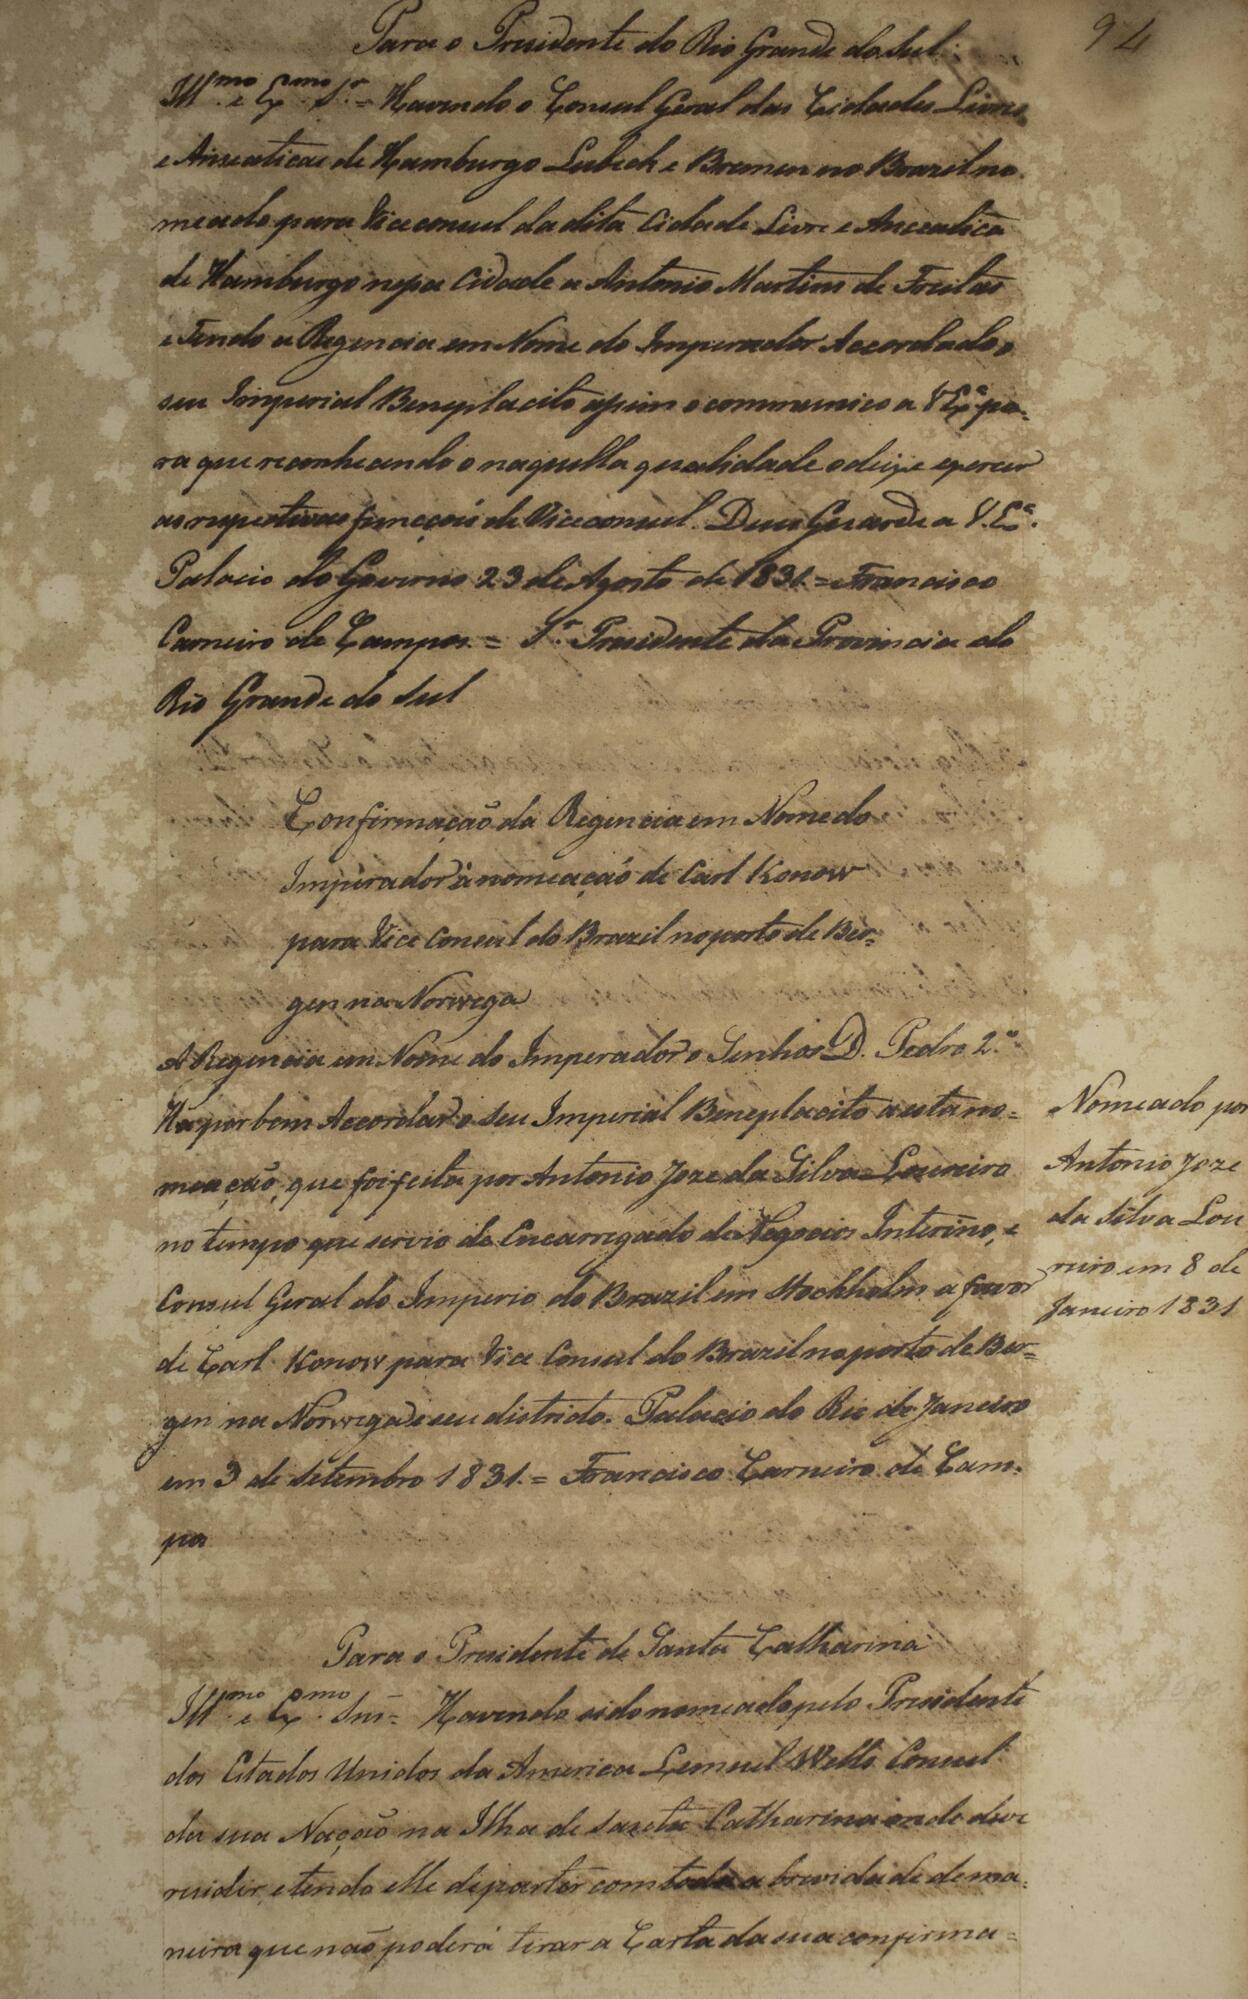 94
Para o Presidente do Rio Grande do Sul
Illmo. e Exmo. Sr. = Havendo o Consul Geral das Cidades Livres
e Anseaticas de Hamburgo Lubeck e Bremen no Brazil no-
meado para Viceconsul da dita Cidade Livre e Anseatica
de Hamburgo nessa Cidade a Antonio Martins de Freitas
e Tendo a Regencia em Nome do Imperador Accordado o
seu Imperial Beneplacito assim o communico a V Exa. pa-
ra que reconhecendo o naquella qualidade o deixe exercer
as respectivas funcçoẽs de Viceconsul. Deos Guarde a V. Exa.
Palacio do Governo 23 de Agosto de 1831. = Francisco
Carneiro de Campos. = Sr. Presidente da Provincia do
Rio Grande do Sul
Confirmação da Regencia em Nome do
Imperador à nomeação de Carl Konow
para Vice Consul do Brazil no porto de Ber-
gen na Norwega
A Regencia em Nome do Imperador o Senhor D. Pedro 2.º
Ha por bem Accordar o seu Imperial Beneplacito a esta no=
meação, que foi feita por Antonio Joze da Silva Loureiro
no tempo que servio de Encarregado de Negocios Interino, e
Consul Geral do Imperio do Brazil em Stockholm a favor
de Carl Konow para Vice Consul do Brazil no porto de Ber=
gen na Norwega e seu districto. Palacio do Rio de Janeiro
em 3 de Setembro 1831. = Francisco Carneiro de Cam-
pos
Nomeado por
Antonio Joze
da Silva Lou
reiro em 8 de
Janeiro 1831
Para o Presidente de Santa Catharina
Illmo. e Exmo. Snr = Havendo sido nomeado pelo Presidente
dos Estados Unidos da America Lemuel Wells Consul
da sua Nação na Ilha de Santa Catharina onde deve
residir, e tendo elle de partir com toda a brevidade de ma-
neira que não poderá tirar a Carta da sua confirma=